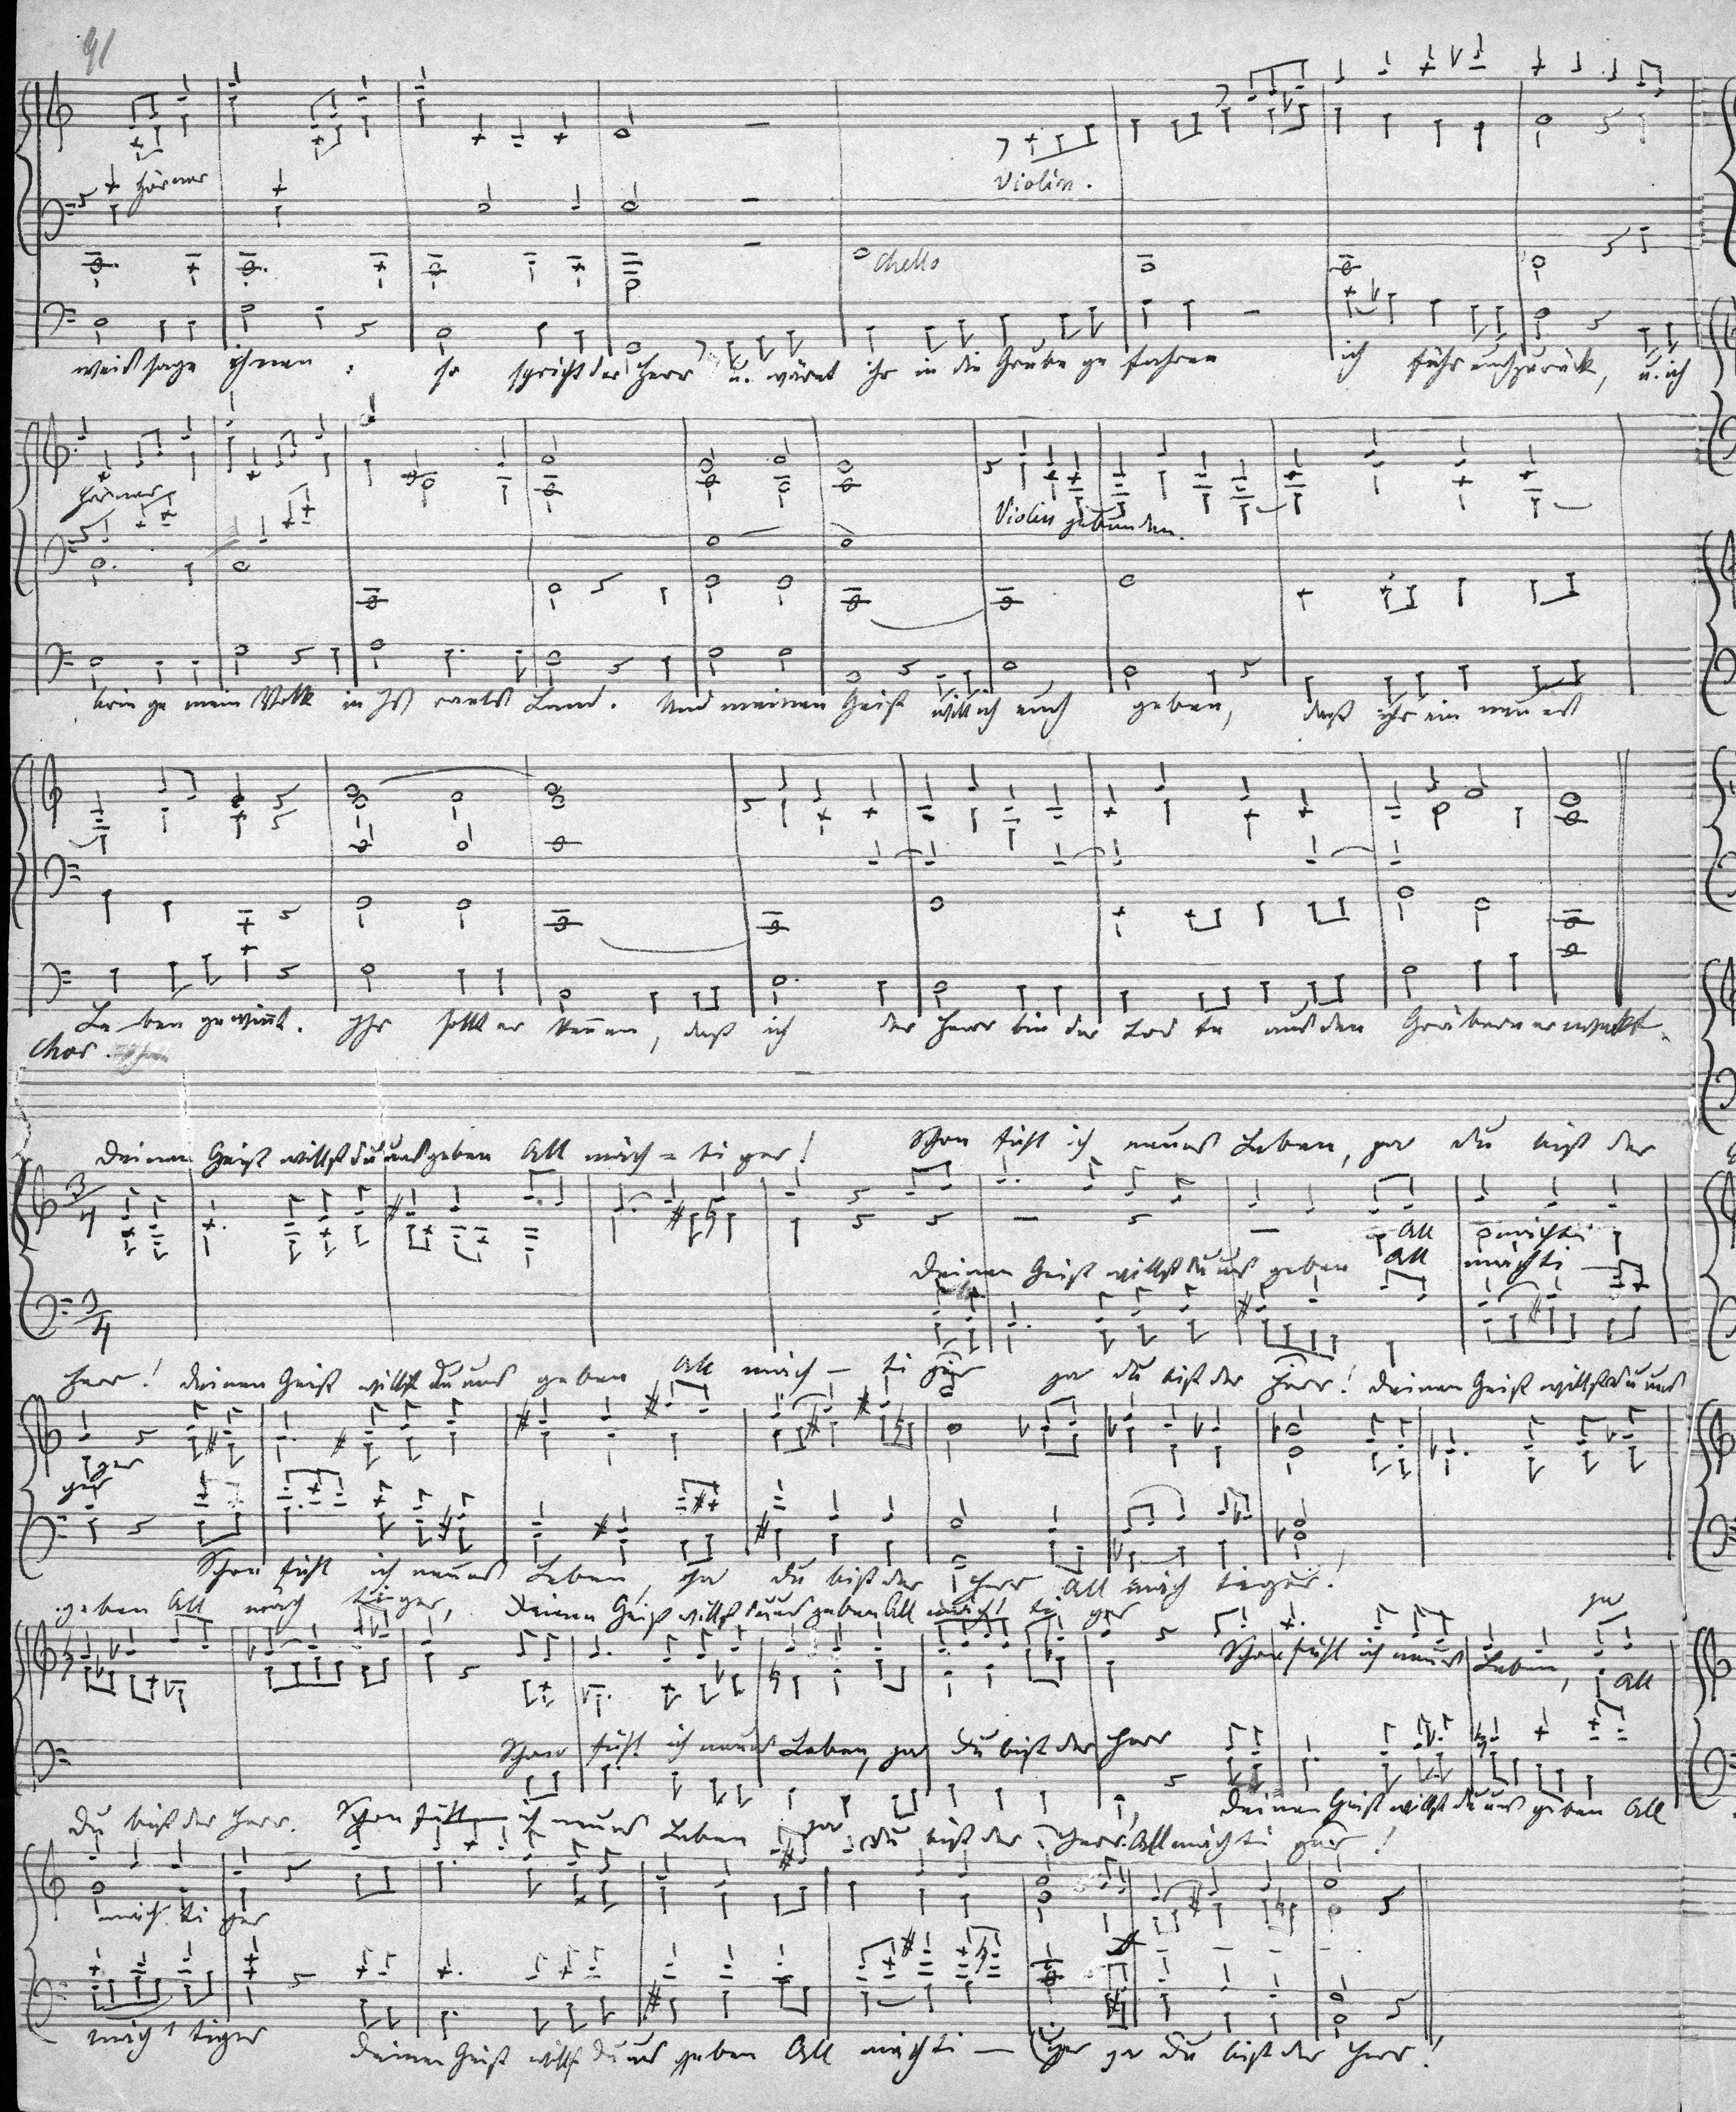 91
Hörner
Violin.
Chello
weissage ihnen: so spricht der Herr u. wäret ihr in die Grube gefahren ich führ euch zurück, u. ich
Hörner
Violin gebunden.
bringe mein Volk in Israels Land. Und meinen Geist will ich euch geben, dass ihr ein neues
Leben gewinnt. Ihr sollt erkennen, dass ich der Herr bin der Todte aus den Gräbern erweckt.
Chor.
Deinen Geist willst du uns geben All mäch = tiger! Schon fühl ich neues Leben, ja du bist der
3/4
All mächti
Deinen Geist willst du uns geben All mächti —
3/4
Herr! Deinen Geist willst du uns geben All mäch — tiger ja du bist der Herr! Deinen Geist willst du uns
ger
ger
Schon fühl ich neues Leben, ja du bist der Herr All mäch tiger!
geben All mäch tiger, Deinen Geist willst du uns geben All mächt ti ger ja
Schon fühl ich neues Leben, All
Schon fühl ich neues Leben, ja du bist der Herr
Deinen Geist willst du uns geben All
Du bist der Herr. Schon fühl ich neues Leben ja du bist der Herr. Allmächti ger!
mäch ti ger
mäch tiger Deinen Geist willst du uns geben All mächti — ger ja du bist der Herr!